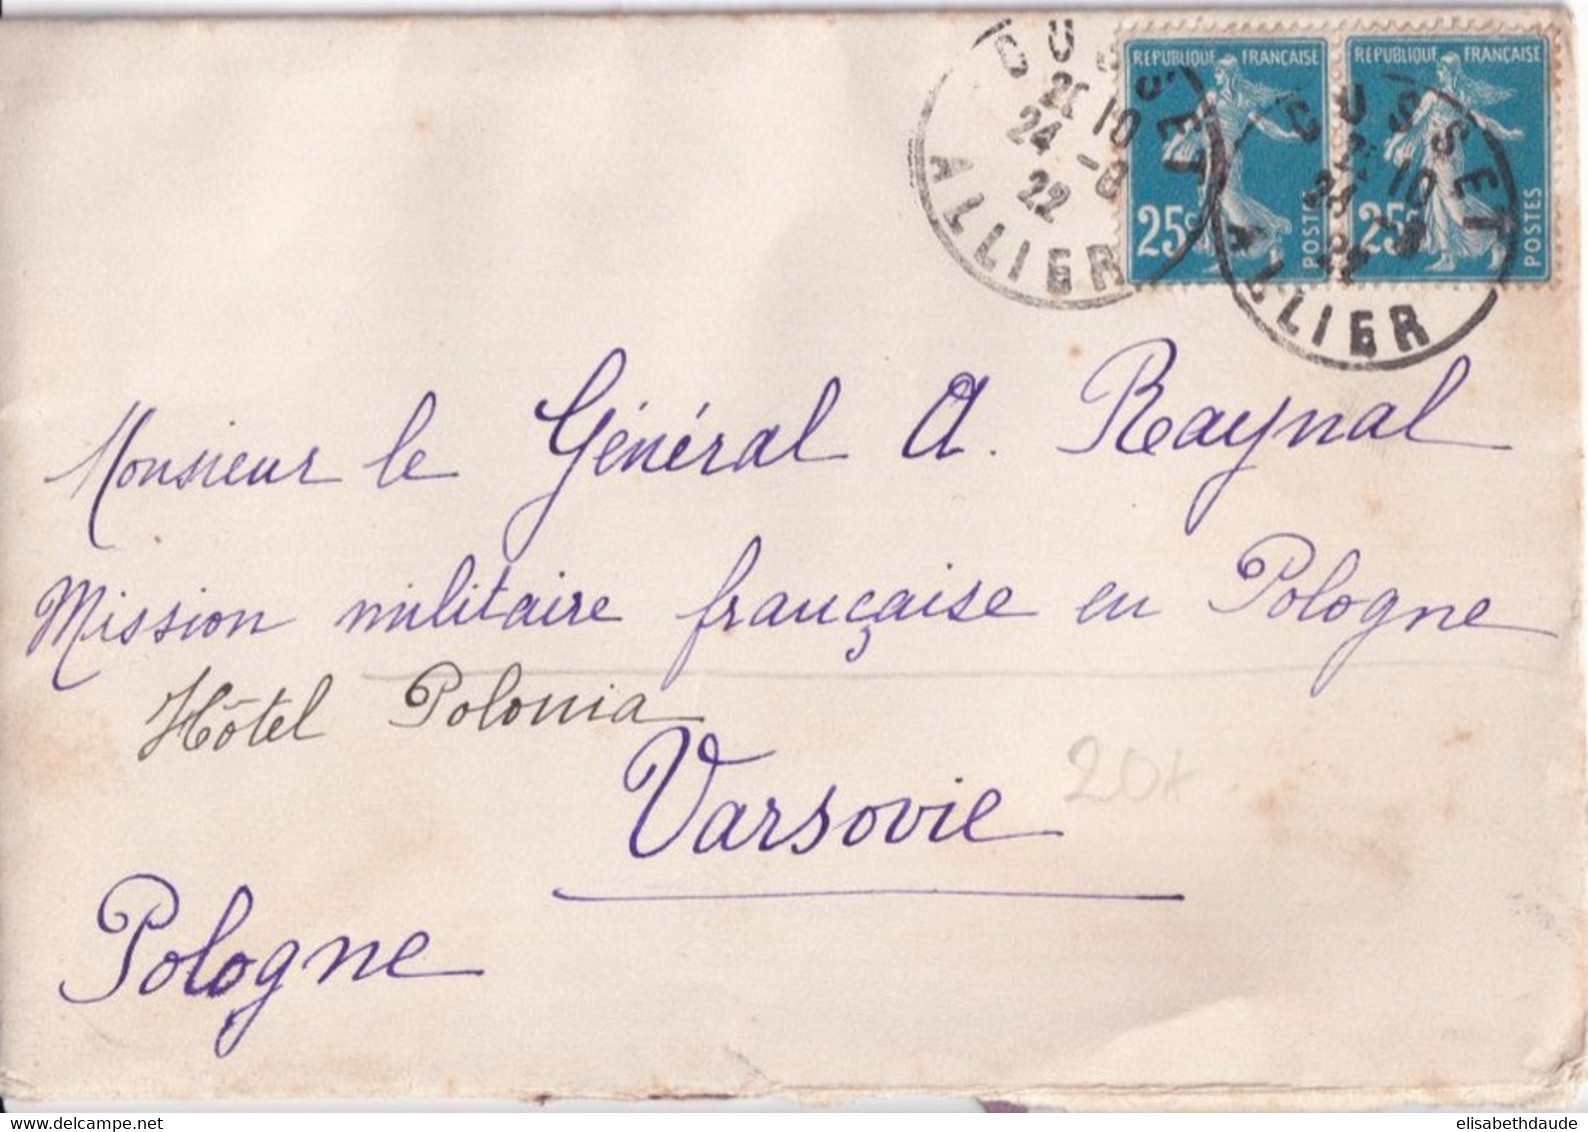 CUSSET
20 10
24 -8
22
ALLIER
REPUBLIQUE FRANÇAISE
25c
POSTES
REPUBLIQUE FRANÇAISE
25c
POSTES
CUSSET
10
ALLIER
Monsieur le Général A. Raynal
Mission militaire française en Pologne
Hôtel Polonia
Varsovie
20
Pologne
www.delcampe.net
elisabethdaude